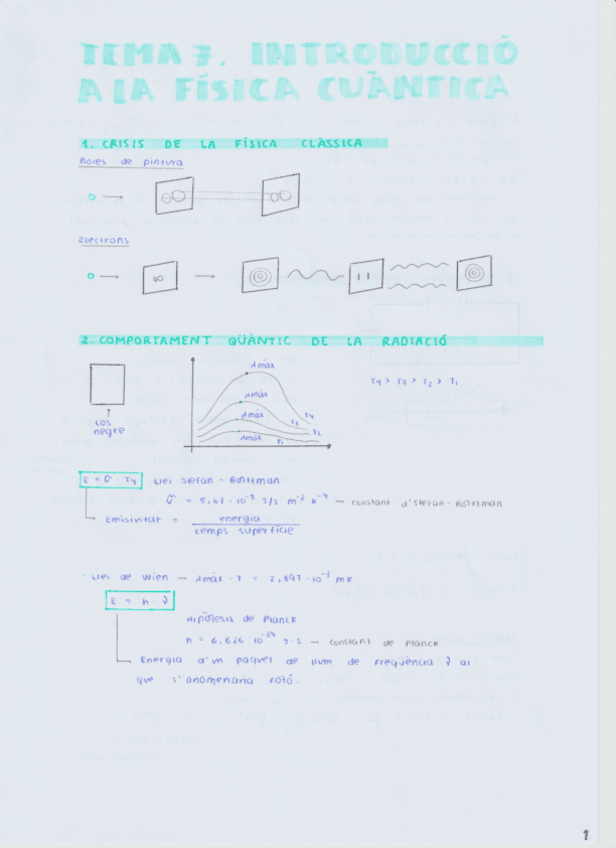 TEMA 7. INTRODUCCIÓ
A LA FÍSICA CUÀNTICA
1. CRISIS DE LA FÍSICA CLÀSSICA
Boles de pintura
Electrons
2. COMPORTAMENT QÜÀNTIC DE LA RADIACIÓ
λmàx
T4 > T3 > T2 > T1
λmàx
T4
λmàx
T3
T2
λmàx
T1
cos
negre
E = σ · T4 Llei Stefan - Boltzman
σ = 5,67 · 10⁻⁸ J/s m⁻² K⁻⁴ — constant d'Stefan - Boltzman
Emisivitat = energia
temps superfície
· Llei de Wien — λmàx · T = 2,897 · 10⁻³ mK
E = h · ν
Hipòtesis de Planck
h = 6,626 · 10⁻³⁴ J · s — constant de Planck
Energia d'un paquet de llum de freqüència ν al
que s'anomenaria fotó.
1